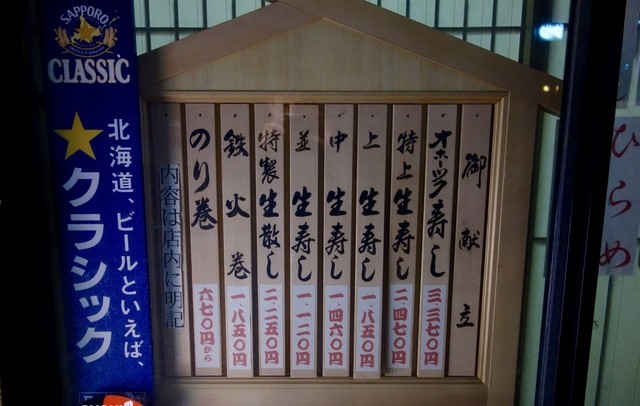 SAPPORO
CLASSIC
北海道、ビールといえば、
★クラシック
御献立
オホーツク寿し 三、三七〇円
特上生寿し 二、四七〇円
上生寿し 一、八五〇円
中生寿し 一、四六〇円
並生寿し 一、一二〇円
特製生散し 二、二五〇円
鉄火巻 一、八五〇円
のり巻 六七〇円から
内容は店内に明記
ひらめ